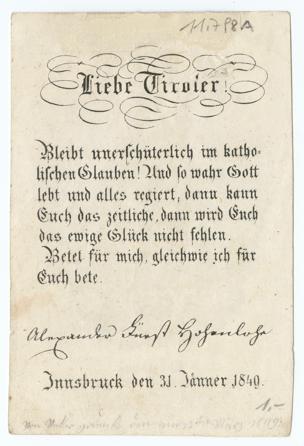 11.798A
Liebe Tiroler!
Bleibt unerschüterlich im katho-
lischen Glauben! Und so wahr Gott
lebt und alles regiert, dann kann
Euch das zeitliche, dann wird Euch
das ewige Glück nicht fehlen.
Betet für mich, gleichwie ich für
Euch bete.
Alexander Fürst Hohenlohe
Innsbruck den 31. Jänner 1849.
1.-